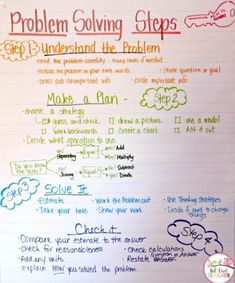 Problem Solving Steps
Step 1: Understand the Problem
· read the problem carefully - many times if needed
· restate the problem in your own words · State question & goal
· cross out unimportant info · Circle important info
Make a Plan - Step 2
- choose a strategy
guess and check draw a picture use a model
Work backwards create a chart Act it out
- Decide what operation to use
Do you know the total?
Joining Equal? Add
Separating Multiply
Join Equal? Subtract
Divide
Step 3 Solve It
· Estimate · Work the Problem out · Use Thinking Strategies
· Take your time · Show your work · Decide if need to change things
Check it Step 4
· Compare your estimate to the answer
· Check for reasonableness · Check calculations
· Add any units · Restate Answer
· Explain HOW you solved the problem